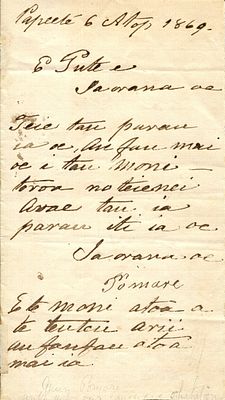 Papeete 6 Atopa 1869.
E Pute e
Iaorana oe
Teie tau parau
ia oe, au fau mai
oe i tau moni
toroa no teienei
Avae tau ia
parau iti ia oe
Iaorana oe
Pomare
E te moni atoa a
te teuteu arii
au fau fau atoa
mai ia
Pomare